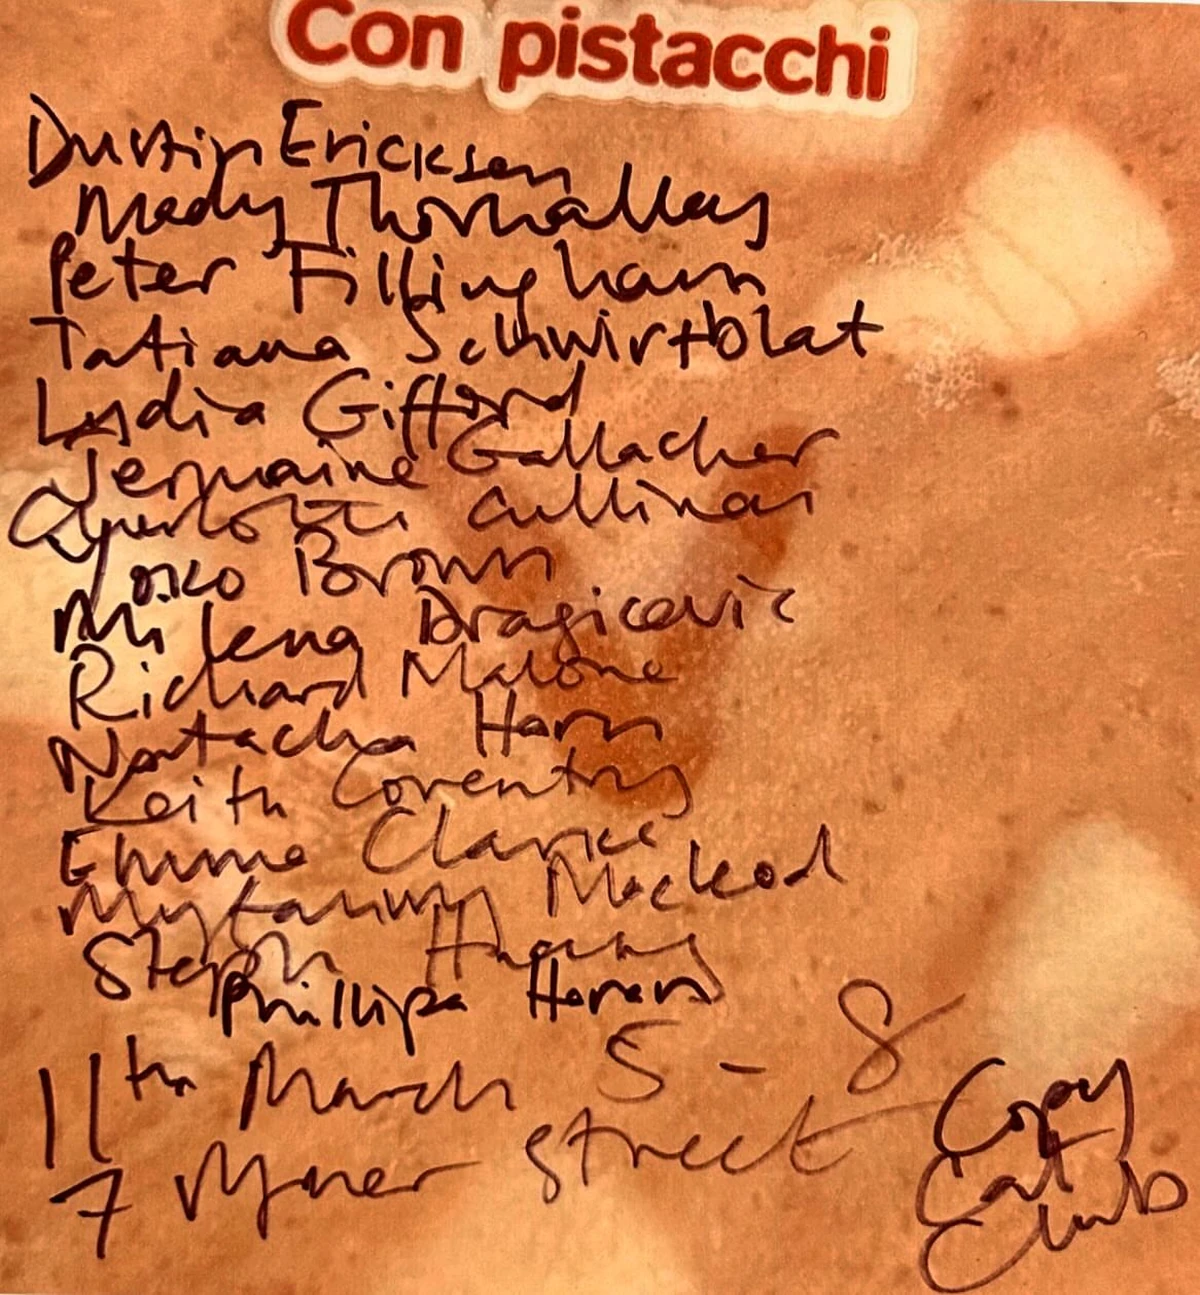 Con pistacchi
Dustin Ericksen
Mady Thornalley
Peter Fillingham
Tatiana Schwirtblat
Lydia Gifford
Jermaine Gallacher
Cullinan
Brown
Milena Dragicevic
Richard Malone
Natacha Horn
Keith Coventry
Emma Clarke
Myfanwy Macleod
Steph
Phillipa Horan
11th March 5 - 8
7 Street
Copy
Cat
Club